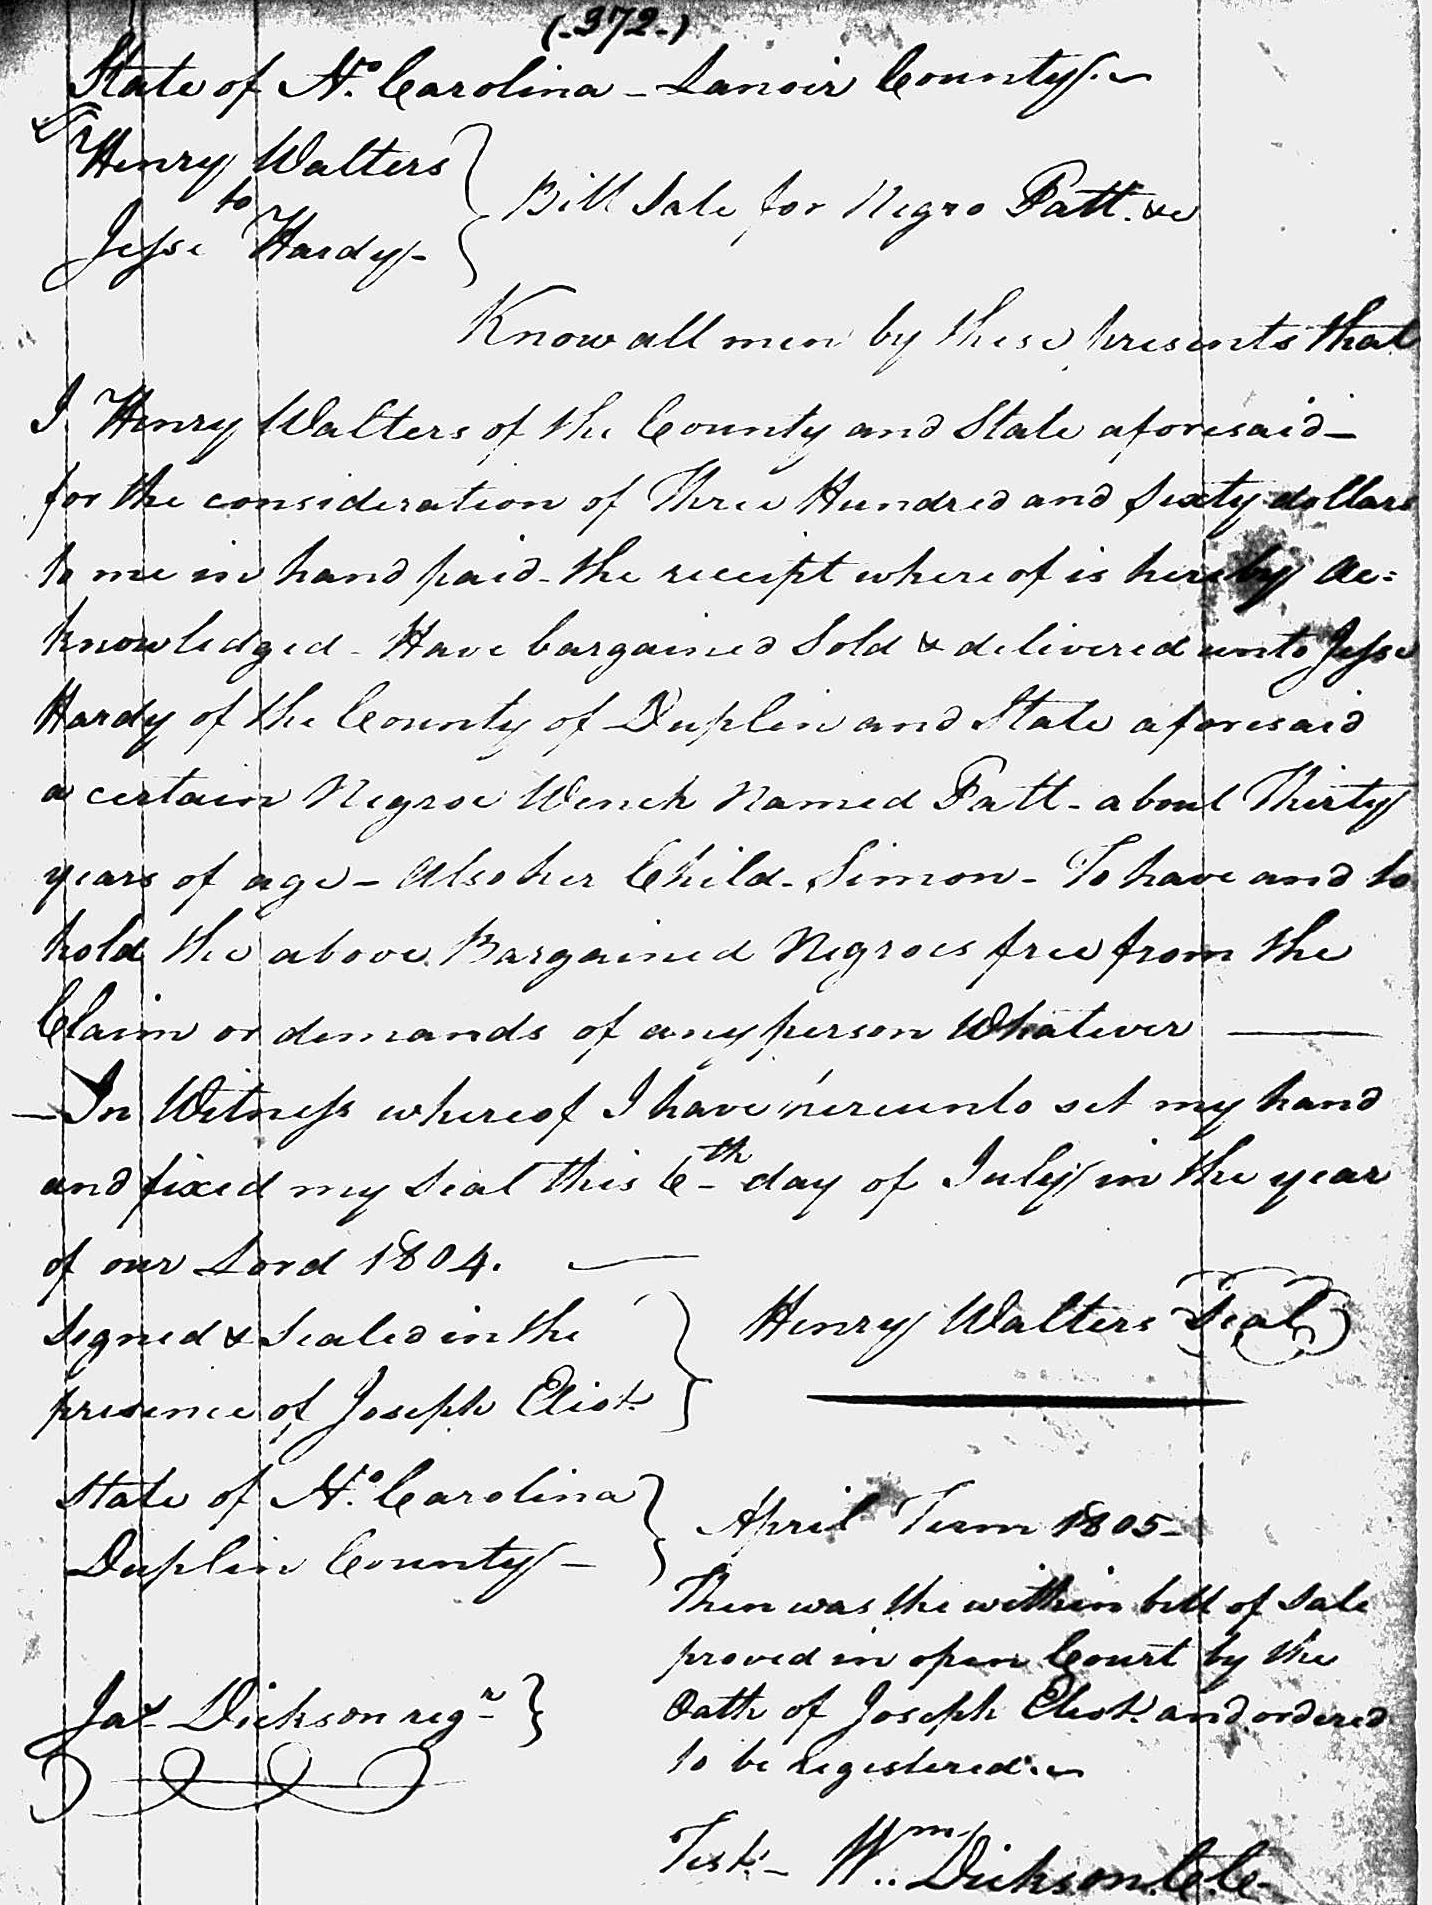 (-372-)
State of No. Carolina - Lanoir County.
Henry Walters
to
Jesse Hardy -
Bill Sale for Negro Patt. &c
Know all men by these presents that
I. Henry Walters of the County and State aforesaid -
for the consideration of Three Hundred and Sixty dollars
to me in hand paid - the receipt where of is hereby ac=
knowledged - Have bargained Sold & delivered unto Jesse
Hardy of the County of Duplin and State aforesaid
a certain Negroe Wench Named Patt - about Thirty
years of age - Also her Child - Simon - To have and to
hold the above Bargained Negroes free from the
Claim or demands of any person Whatever —
- In Witness whereof I have hereunto set my hand
and fixed my Seal this 6th day of July in the year
of our Lord 1804. —
Signed & Sealed in the
presence of Joseph Eliot
Henry Walters Seal
State of No. Carolina
Duplin County -
April Term 1805 -
Then was the within bill of Sale
proved in open Court by the
Oath of Joseph Eliot and ordered
to be registered. -
Jas Dickson regr
Test. - Wm Dickson C.C.